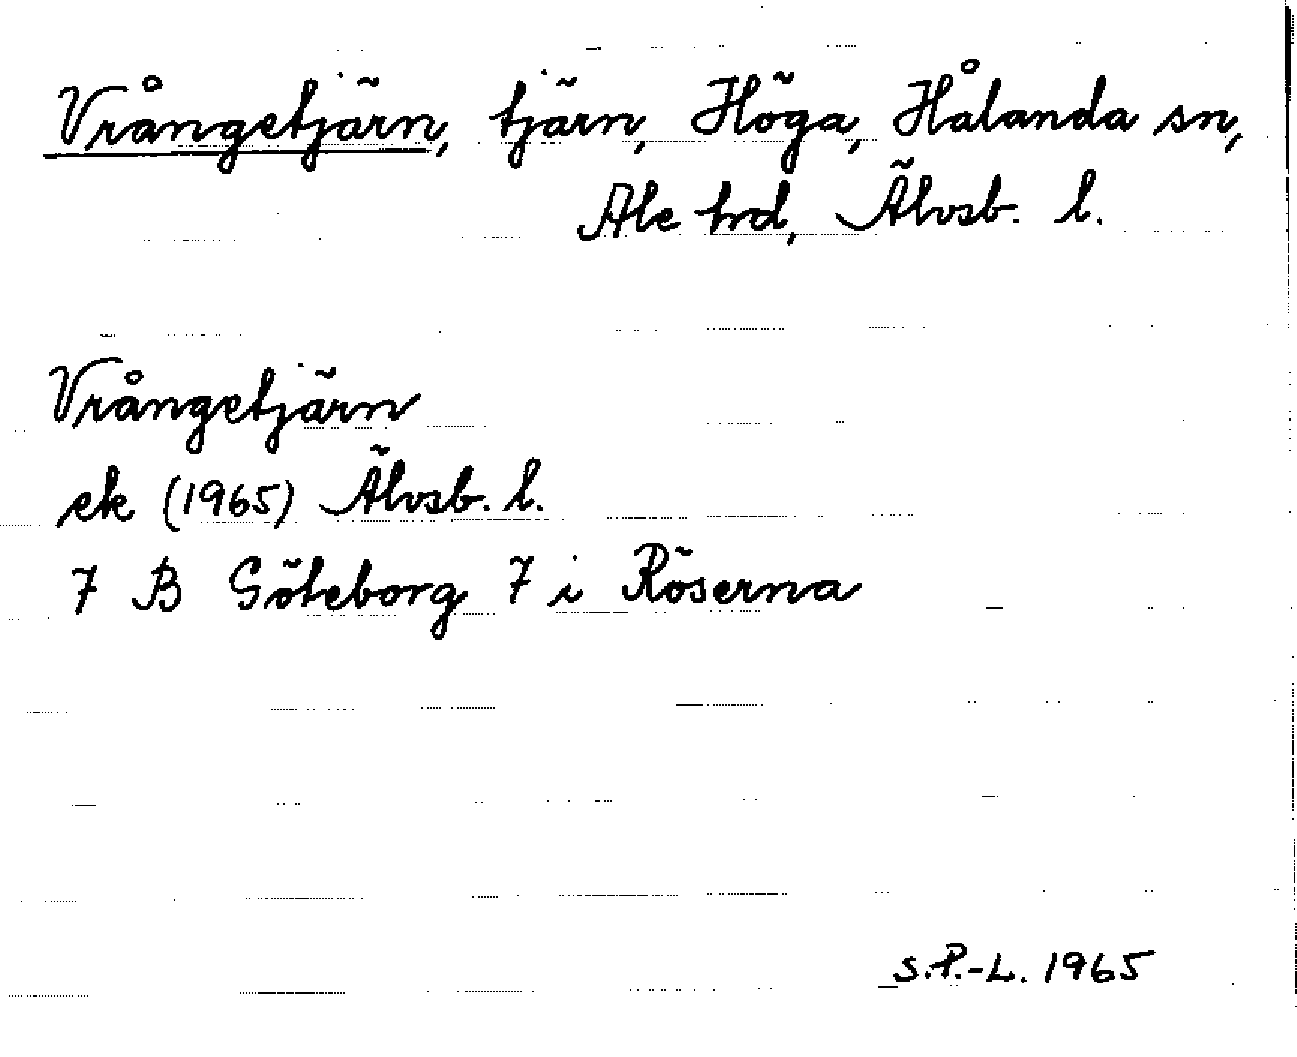 Vrångetjärn, tjärn, Höga, Hålanda sn,
Ale hrd, Älvsb. l.
Vrångetjärn
ek (1965) Älvsb. l.
7 B Göteborg 7 i Röserna
S.P.-L. 1965